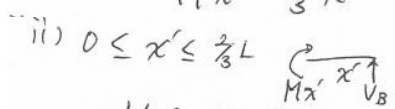 ii) 0 ≤ x′ ≤ 2/3 L
x′
Mx′ V_B